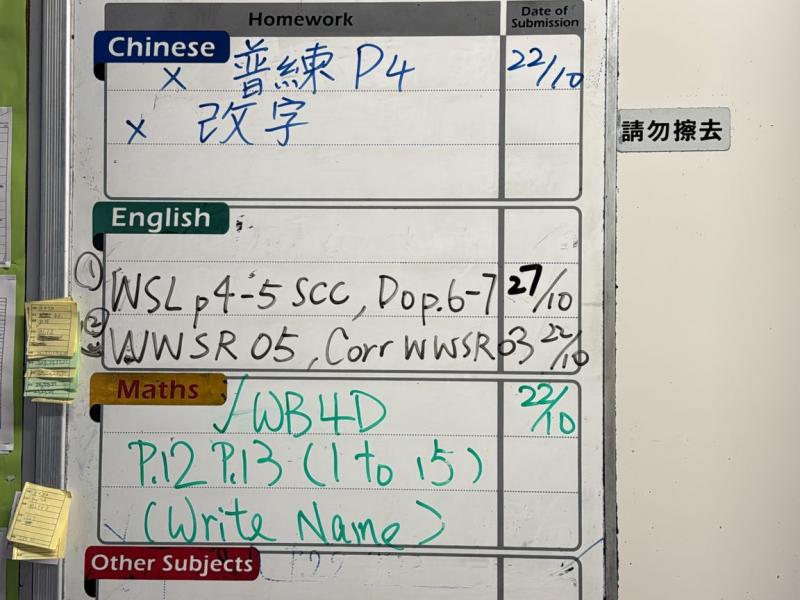 Homework
Date of Submission
Chinese
x 普練 P4 22/10
x 改字
請勿擦去
English
① WSL p4-5 SCC, Do p.6-7 27/10
② WWSR 05, Corr WWSR 03 22/10
Maths
√ WB4D 22/10
P.12 P.13 (1 to 15)
(Write Name)
Other Subjects